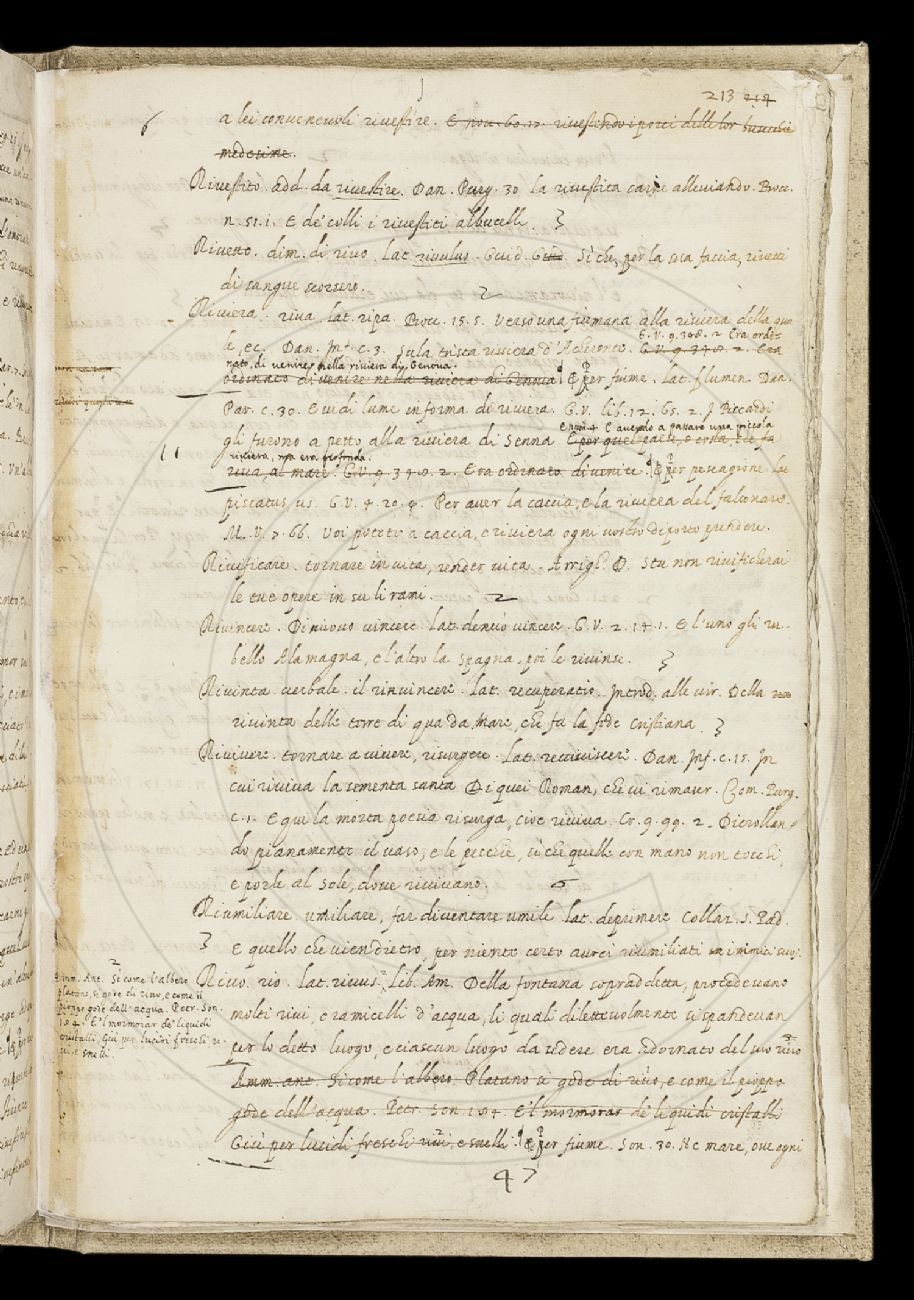 213 214
a lei conueneuoli riuestire. E nou. 60. 12. riuestendo i porci delle lor buccie
medesime.
Riuestito add. da riuestire. Dan. Purg. 30 la riuestita carne alleuiando. Bocc.
n. 51. 1. E de' colli i riuestiti albucelli.
Riuetto. dim. di riuo. Lat. riuulus. Guid. G. Sì che, per la sua faccia, riuetti
di sangue scorsero. 2
Riuiera. riua. lat. ripa. Bocc. 15. 5. Verso una fiumana alla riuiera della qua
le, ec. Dan. Inf. c. 3. Sula trista riuiera d'Acheronte. G. V. 9. 398. 2. Era
G. V. 9. 398. 2 Era ordi-
nato, di uenire, nella riuiera di Genoua.
ordinato di uenire nella riuiera di Genoua. E per fiume. lat. flumen. Dan.
Par. c. 30. E uidi lume in forma di riuiera. G. V. lib. 12. 65. 2. I Piccardi
gli furono a petto alla riuiera di Senna. E per quel paese, o costa, che fa
E num. 4 E auendo a passare una piccola
riuiera, ma era profonda.
riua, al mare. G. V. 9. 398. 2. Era ordinato di uenire. E per pescagione lat
piscatus, us. G. V. 4. 20. 4. Per auer la caccia, e la riuiera del falconare.
M. V. 7. 66. Voi potete a caccia, e riuiera ogni uostro diporto prendere.
Riuificare. tornare in uita, render uita. Arrigh. D. Stu non riuificherai
le tue opere in su li rami. 2
Riuincere. Di nuouo uincere lat. denuò uincere. G. V. 2. 14. 1. E l'uno gli ru-
bello Alamagna, e l'altro la Spagna, poi le riuinse.
Riuinta uerbale. il riuincere. lat. recuperatio. Introd. alle uir. Della
riuinta delle terre di qua da mare, che fa la fede Cristiana.
Riuiuere. tornare a uiuere, risurgere. lat. reuiuiscere. Dan. Inf. c. 15. In
cui riuiua la sementa santa Di quei Roman, che ui rimaser. Com. Purg.
c. 1. E qui la morta poesia risurga, cioè riuiua. Cr. 9. 99. 2. Dicrollan-
do pianamente il uaso, e le pecchie, sì che quelle con mano non tocchi,
e porle al sole, doue riuiuano. 6
Riumiliare. umiliare, far diuentare umile. lat. deprimere Collaz. S. Pad.
E quello che uien dietro, per niente certo aurei riumiliati in inimici suoi.
Riuo. rio. lat. riuus. Lib. Am. Della fontana sopraddetta, procedeuano
molti riui, e ramicelli d'acqua, li quali dileteuolmente si spandeuan
per lo detto luogo, e ciascun luogo da sedere era adornato del suo riuo
Amm. ant. Si come l'albero Platano si gode di riuo, e come il pioppo
gode dell'acqua. Petr. Son 184. E'l mormorar de' liquidi cristalli
Giù per lucidi freschi riui, e snelli. E per fiume. Son. 30. Ne mare, oue ogni
Amm. Ant. Si come l'albero
platano, si gode di riuo, e come il
pioppo gode dell'acqua. Petr. Son.
184. E'l mormorar de' liquidi
cristalli, Giù per lucidi freschi ri-
ui, e snelli.
47